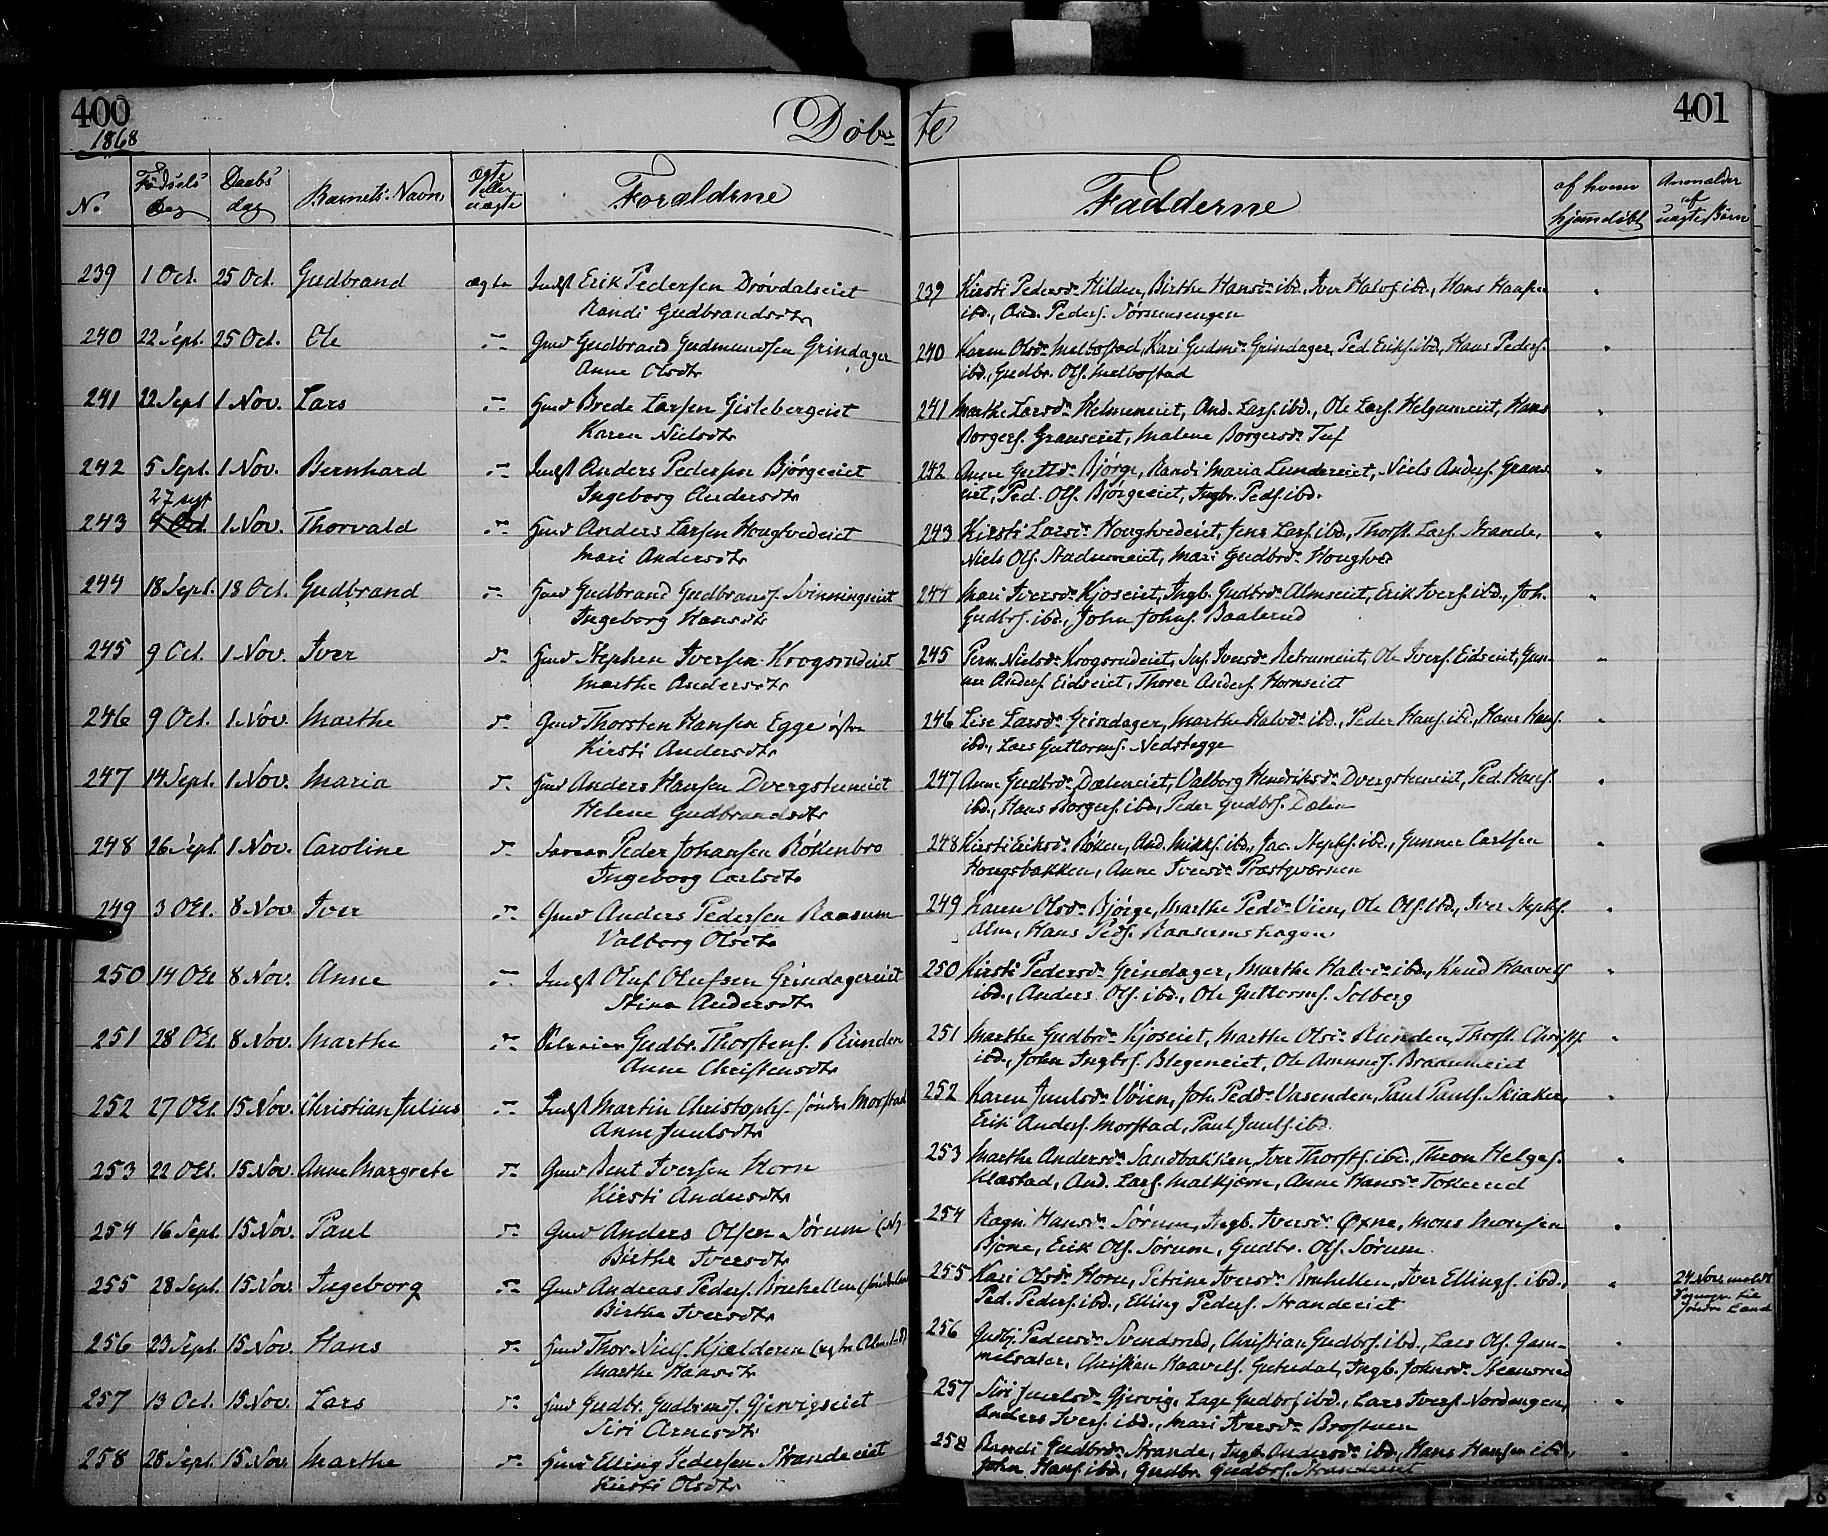 400
1868
Døb-
te
401
No.
Fødsels Dag
Daabs dag
Barnets Navn
Ægte eller uægte
Forældrene
Fadderne
af hvem hjemdøbt
Anmælder af uægte Børn
239 1 Oct. 25 Oct. Gudbrand ægte Indst Erik Pedersen Drøvdalseiet
Randi Gudbrandsdtr
240 22 Sept. 25 Oct. Ole Gmd Gudbrand Gudmundsen Grindager
Anne Olsdtr
241 22 Sept 1 Nov. Lars Hmd Brede Larsen Gislebergeiet
Karen Nielsdtr
242 5 Sept. 1 Nov. Bernhard Indst Anders Pedersen Bjørgeeiet
Ingeborg Andersdtr
27 Sept
243 4 Oct. 1 Nov. Thorvald Hmd Anders Larsen Hougtvedeiet
Mari Andersdtr
244 18 Sept. 18 Oct. Gudbrand Hmd Gudbrand Gudbrands. Svinningseiet
Ingeborg Hansdtr
245 9 Oct. 1 Nov. Iver Hmd Stephen Iversen Krogsrudeiet
Marthe Andersdtr
246 9 Oct. 1 Nov. Marthe Gmd Thorsten Hansen Egge østre
Kirsti Andersdtr
247 14 Sept. 1 Nov. Maria Hmd Anders Hansen Dvergstuneiet
Helene Gudbrandsdtr
248 26 Sept. 1 Nov. Caroline Peder Johansen Røkenbro
Ingeborg Carlsdtr
249 3 Oct. 8 Nov Iver Gmd Anders Pedersen Raasum
Valborg Olsdtr
250 14 Oct 8 Nov. Anne Indst Oluf Olufsen Grindagereiet
Stina Andersdtr
251 28 Oct. 8 Nov. Marthe Gudbr. Thorstens. Ründen
Anne Christensdtr
252 27 Oct. 15 Nov. Christian Julius Indst Martin Christophs. søndre Morstad
Anne Juulsdtr
253 22 Oct. 15 Nov. Anne Margrete Gmd Bent Iversen Horn
Kirsti Andersdtr
254 16 Sept. 15 Nov. Paul Gmd Anders Olsen Sørum (N)
Birthe Iversdtr
255 28 Sept. 15 Nov. Ingeborg Gmd Andreas Peders. Bruhellen
Birthe Iversdtr
256 23 Sept. 15 Nov. Hans Hmd Thor Niels. Kjælderen
Marthe Hansdtr
257 13 Oct. 15 Nov. Lars Hmd Gudbr. Gudbrands. Gjervigseiet
Siri Arnesdtr
258 28 Sept. 15 Nov. Marthe Hmd Elling Pedersen Strandeeiet
Kirsti Olsdtr
239 Kirsti Pedersdr Hilden, Birthe Hansdr ibd., Iver Halvs. ibd., Hans Hansen
ibd., And. Peders. Sørumsengen
240 Karen Olsdr Melbostad, Kari Gudmdr Grindager, Ped. Eriks. ibd., Hans Peders.
ibd., Gudbr. Ols. Melbostad
241 Marthe Larsdr Helmeneiet, And. Lars. ibd., Ole Lars. Helgumeiet, Hans
Borgers. Granseiet, Malene Borgersdr Tuf
242 Anne Guttdr Bjørge, Randi Maria Lundereiet, Niels Anders. Grans
eiet, Ped. Ols. Bjørgeeiet, Ingbr. Peds. ibd.
243 Kirsti Larsdr Hougtvedeiet, Jens Lars. ibd., Thorst. Lars. Strande,
Niels Ols. Stadumeiet, Mari Gudbrdr Hougtved
244 Mari Iversdr Kjoseiet, Ingb. Gudbrdr Almseiet, Erik Ivers. ibd., Joh.
Gudbrs. ibd., John Johns. Baalerud
245 Pern. Nielsdr Krogsrudeiet, Iversdr Retrumeiet, Ole Ivers. Eidseiet, Gun-
ner Anders. Eidseiet, Thorer Anders. Hornseiet
246 Lise Larsdr Grindager, Marthe Halvdr ibd., Peder Hans. ibd., Hans Hans.
ibd., Lars Guttorms. Nedstegge
247 Anne Gudbrdr Dæleneiet, Valborg Hendriksdr Dvergstuneiet, Ped. Hans.
ibd., Hans Borgers. ibd., Peder Gudbrs. Dælen
248 Kirsti Eriksdr Røken, And. Mikks. ibd., Jac. Stephs. ibd., Gunner Carlsen
Hougsbakken, Anne Iversdr Præstqværnen
249 Karen Olsdr Bjørge, Marthe Peddr Vien, Ole Ols. ibd., Iver Stephs.
Alm, Hans Peds. Raasumshagen
250 Kirsti Pedersdr Grindager, Marthe Halvdr ibd., Knud Haavels
ibd., Anders Ols. ibd., Ole Guttorms. Solberg
251 Marthe Gudbrdr Kjoseiet, Marthe Olsdr Ründen, Thorst. Christs.
ibd., John Ingbrs. Blegeneiet, Ole Amuns. Braanneiet
252 Karen Juulsdr Vøien, Joh. Peddr Vasenden, Paul Pauls. Skiaker,
Erik Anders. Morstad, Paul Juuls. ibd.
253 Marthe Andersdr Sandbakken, Iver Thorsts. ibd., Theon Helges.
Klæstad, And. Lars. Malkjern, Anne Hansdr Tokerud
254 Ragn. Hansdr Sørum, Ingb. Iversdr Øxne, Mons Monsen
Bjone, Erik Ols. Sørum, Gudbr. Ols. Sørum
255 Kari Olsdr Horn, Petrine Iversdr Bruhellen, Iver Ellings. ibd.,
Ped. Peders. ibd., Elling Peders. Strandeeiet
24 Nov. meldt
til
søndre Land
256 Gudbj. Pedersdr Svendsrud, Christian Gudbrs. ibd., Lars Ols. Gam-
melsæter, Christian Haavels. Gutudal, Ingb. Johnsdr
257 Siri Juulsdr Gjervig, Lage Gudbrs. ibd., Lars Ivers. Nordengen,
Anders Ivers. ibd., Mari Iversdr
258 Randi Gudbrdr Strande, Ingb. Andersdr ibd., Hans Hansen ibd.,
John Hans. ibd., Gudbr. Gudbrs. Strandeeiet